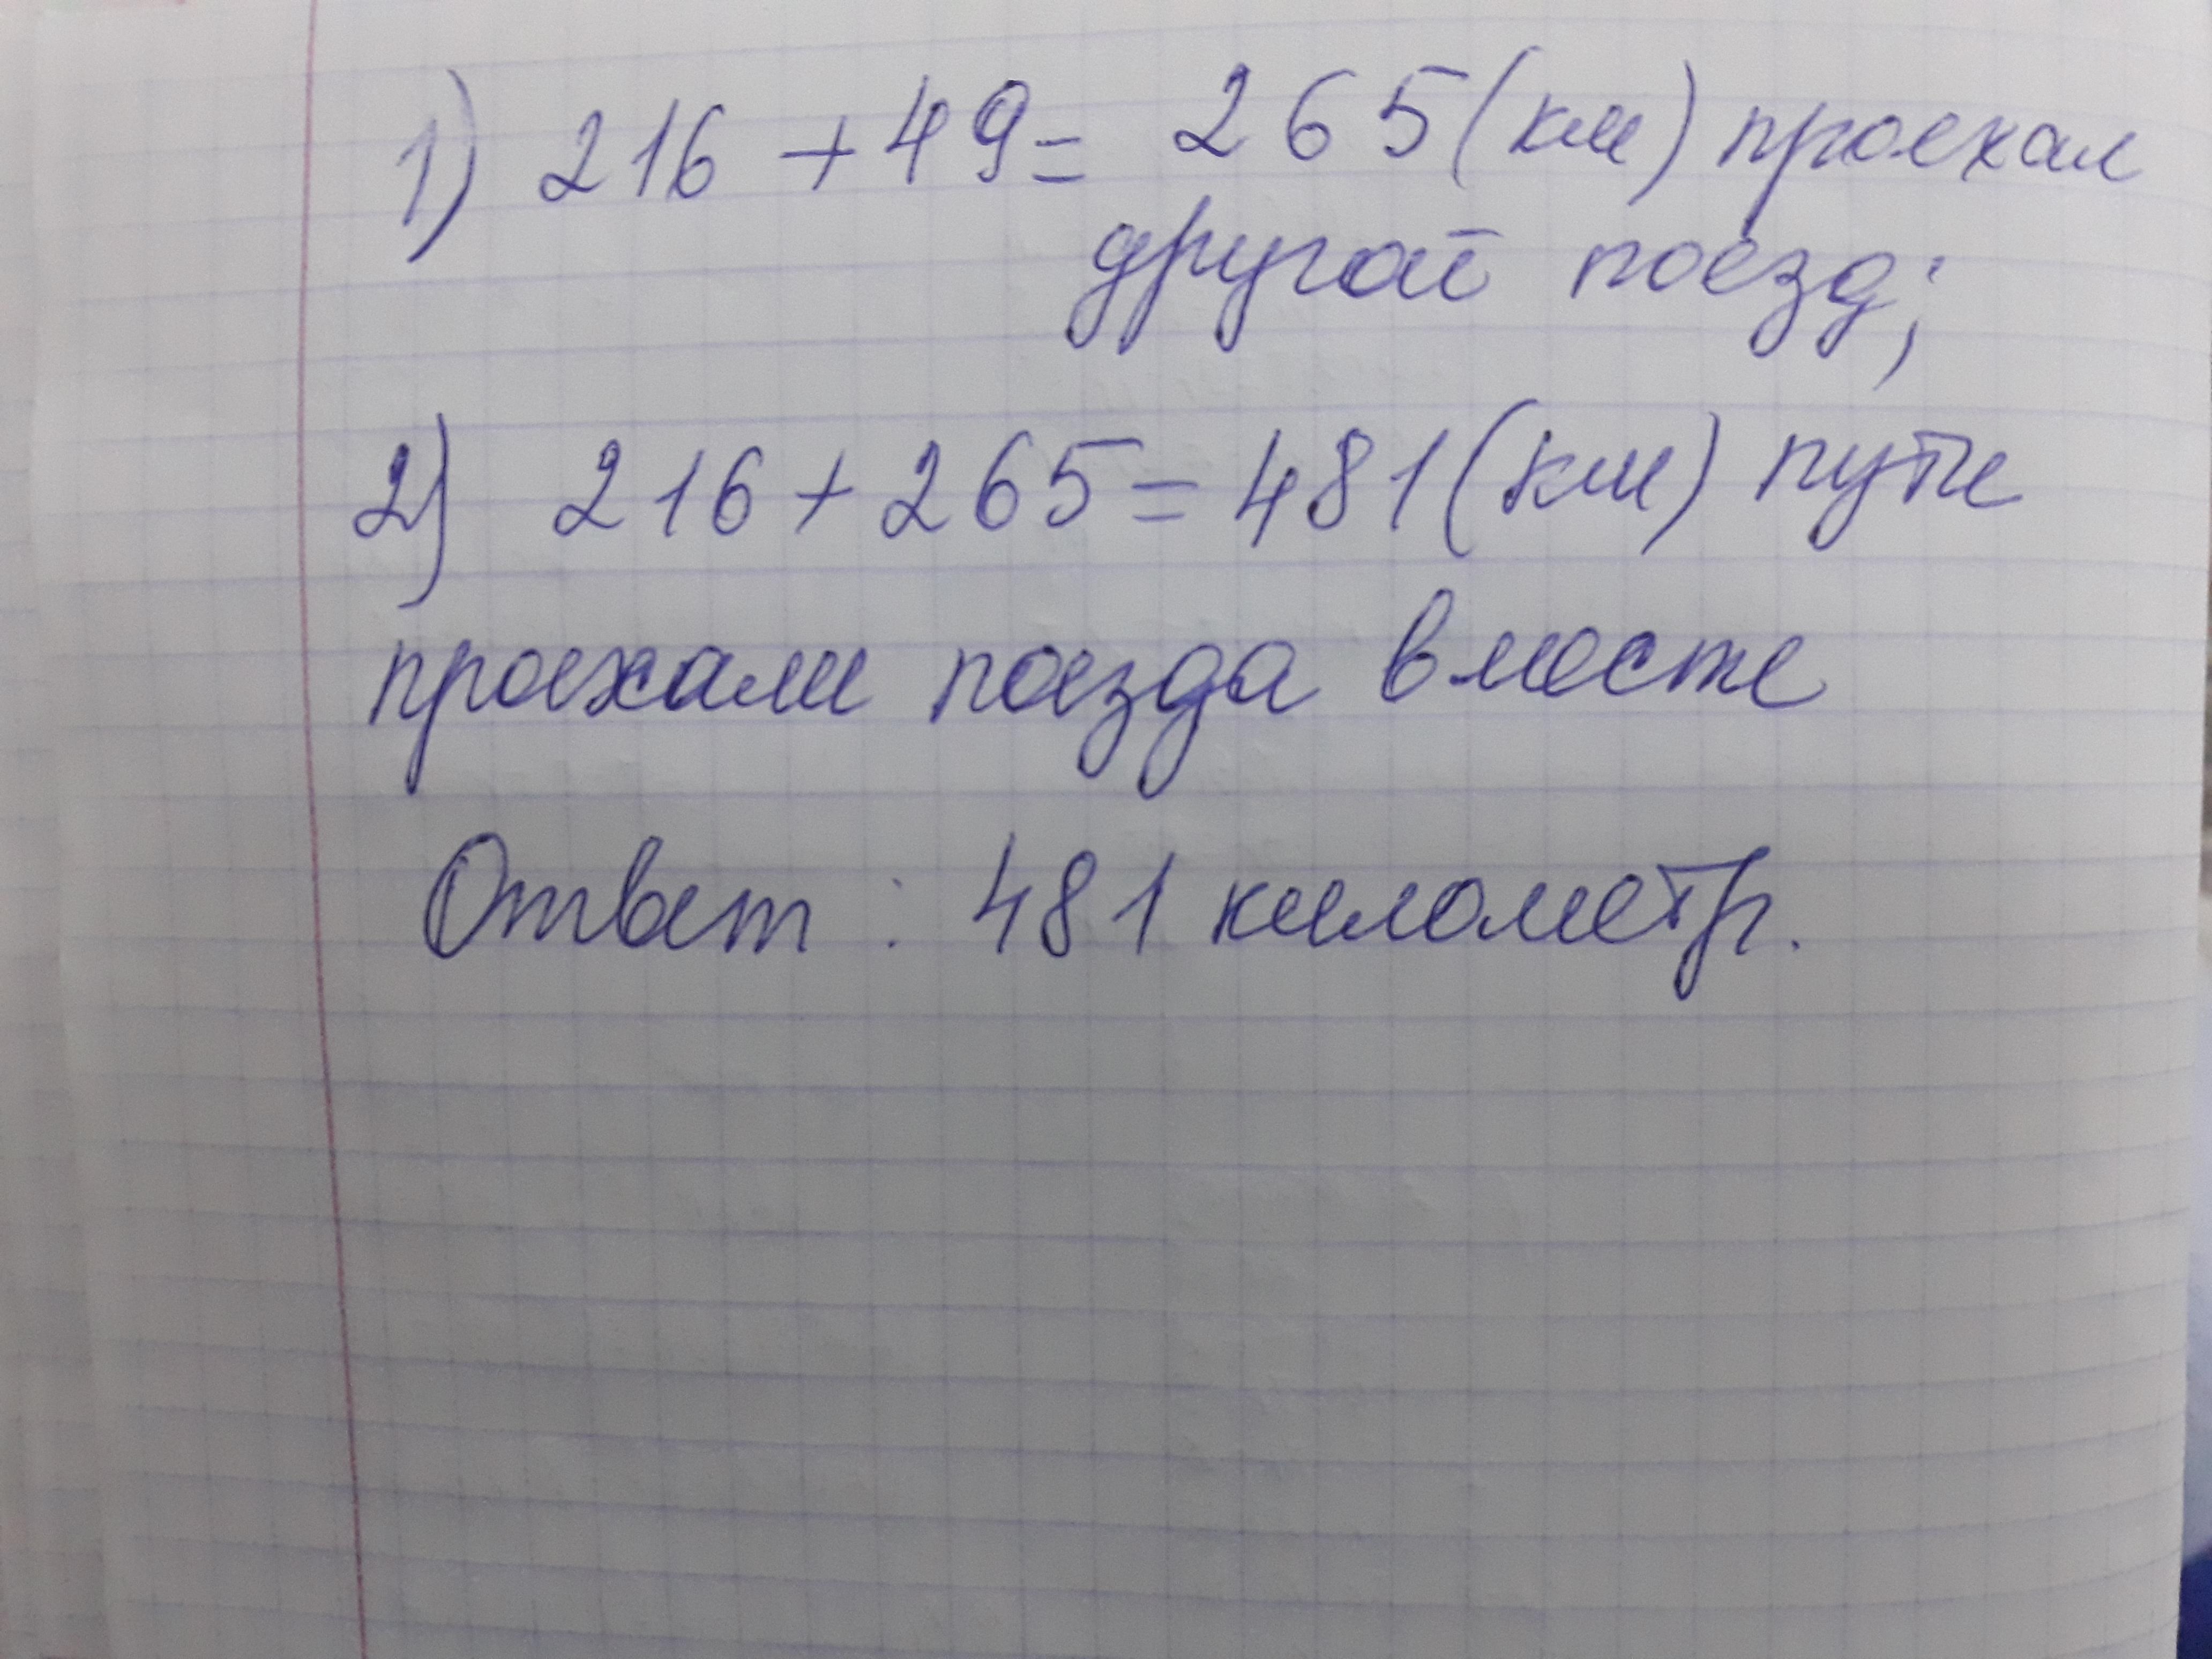 1) 216 + 49 = 265 (км) проехал
другой поезд;
2) 216 + 265 = 481 (км) пути
проехали поезда вместе
Ответ : 481 километр.